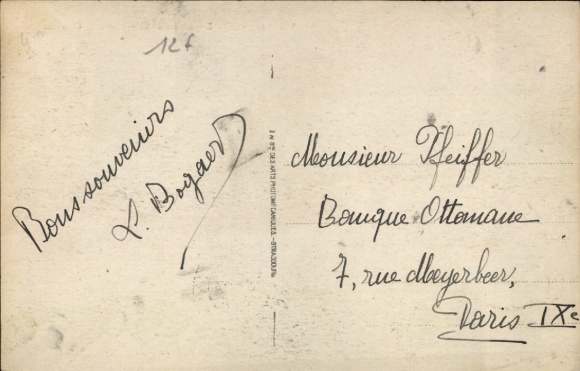 12f
Bons souvenirs
L. Bogaert
Monsieur Pfeiffer
Banque Ottomane
7, rue Meyerbeer,
Paris IXe
DES ARTS PHOTOMÉCANIQUES. - STRASBOURG